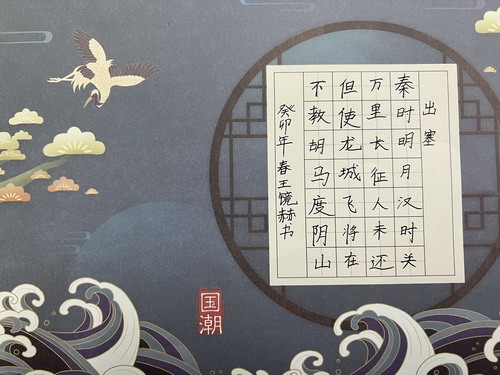 出塞
秦时明月汉时关
万里长征人未还
但使龙城飞将在
不教胡马度阴山
癸卯年春王镜赫书
国潮